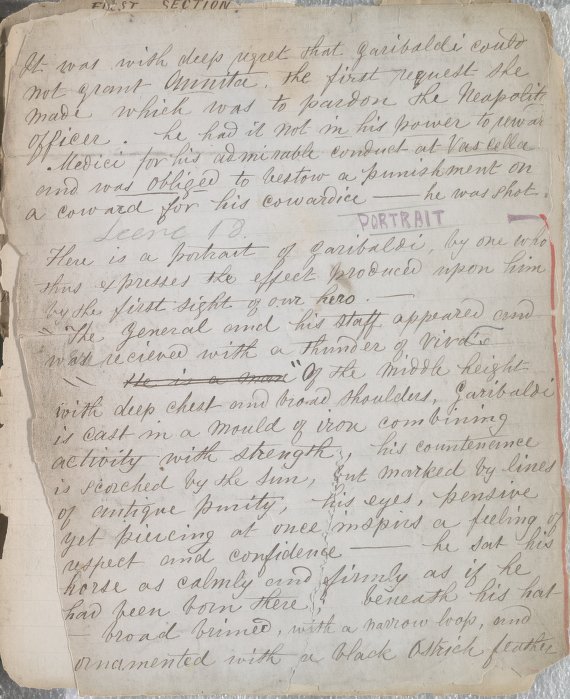 FIRST SECTION.
It was with deep regret that Garibaldi could
not grant Annita, the first request she
made which was to pardon the Neapolit
officer. he had it not in his power to rewar
Medici for his admirable conduct at Vascella
and was obliged to bestow a punishment on
a coward for his cowardice — he was shot.
Scene 18.
PORTRAIT
Here is a portrait of Garibaldi, by one who
thus expresses the effect produced upon him
by the first sight of our hero. —
"The General and his staff appeared and
was recieved with a thunder of Viva's
He is a man "Of the middle height
with deep chest and broad shoulders, Garibaldi
is cast in a mould of iron combining
activity with strength, his countenance
is scorched by the sun, but marked by lines
of antique purity, his eyes, pensive
yet piercing at once inspire a feeling of
respect and confidence — he sat his
horse as calmly and firmly as if he
had been born there; beneath his hat
— broad brimed, with a narrow loop, and
ornamented with a black Ostrich feather